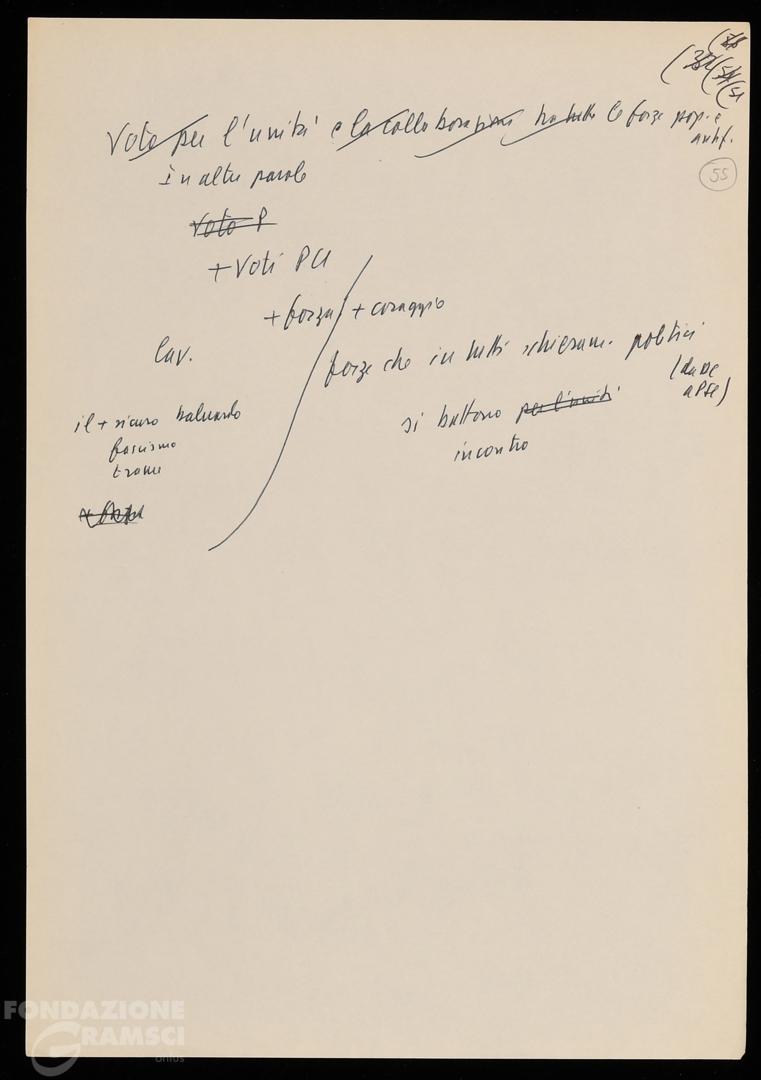 Voto per l'unità e la collaborazione tra tutte le forze pop. e
antif.
55
in altre parole
Voto P
+ Voti PCI
+ forza / + coraggio
lav.
forze che in tutti schieram. politici
(da DC
a PSI)
il + sicuro baluardo
fascismo
trame
si battono per l'unità
incontro
FONDAZIONE
GRAMSCI
onlus